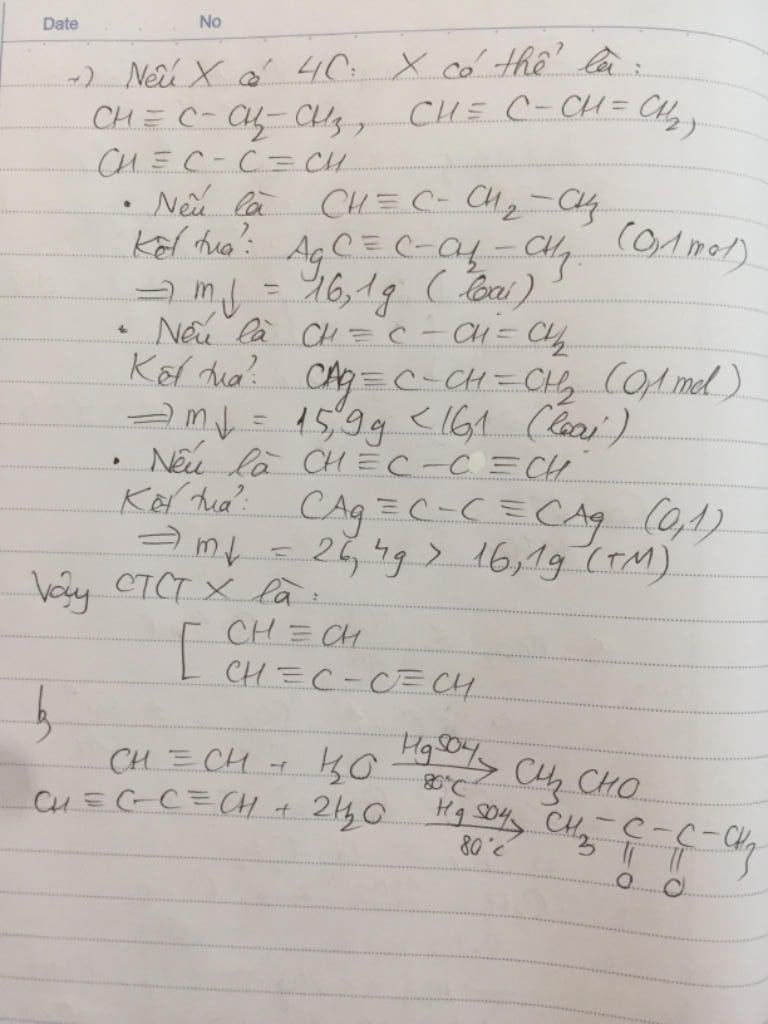 Date No
+) Nếu X có 4C: X có thể là:
CH ≡ C - CH2 - CH3, CH ≡ C - CH = CH2,
CH ≡ C - C ≡ CH
• Nếu là CH ≡ C - CH2 - CH3
Kết tủa: AgC ≡ C - CH2 - CH3 (0,1 mol)
=> m↓ = 16,1g (loại)
• Nếu là CH ≡ C - CH = CH2
Kết tủa: CAg ≡ C - CH = CH2 (0,1 mol)
=> m↓ = 15,9g < 16,1 (loại)
• Nếu là CH ≡ C - C ≡ CH
Kết tủa: CAg ≡ C - C ≡ CAg (0,1)
=> m↓ = 26,4g > 16,1g (TM)
Vậy CTCT X là:
[ CH ≡ CH
CH ≡ C - C ≡ CH
b
CH ≡ CH + H2O HgSO4 80°C → CH3 CHO
CH ≡ C - C ≡ CH + 2H2O HgSO4 80°C → CH3 - C - C - CH3
|| ||
O O